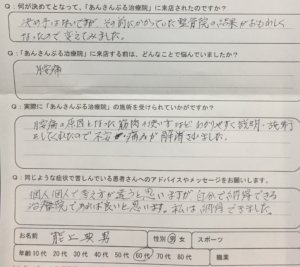 Q:何が決めてとなって、「あんさんぶる治療院」に来店されたのですか?
決め手はないですが、その前にかかっていた整骨院の
なったので変えてみました。
Q:「あんさんぶる治療院」に来店する前は、どんなことで悩んでいましたか?
腰痛
Q:実際に「あんさんぶる治療院」の施術を受けられていかがですか?
腰痛の原因となった筋肉の使い方などわかりやすく説明・施術
をしてくれたので不安や痛みが解消されました。
Q:同じような症状で苦しんでいる患者さんへのアドバイスやメッセージをお願いします。
個人個人で考え方が違うと思いますが自分で納得できる
治療院であれば良いと思います。私は納得できました。
お名前 能上典男 性別 男 女 スポーツ
年齢 10代 20代 30代 40代 50代 60代 70代 80代 職業